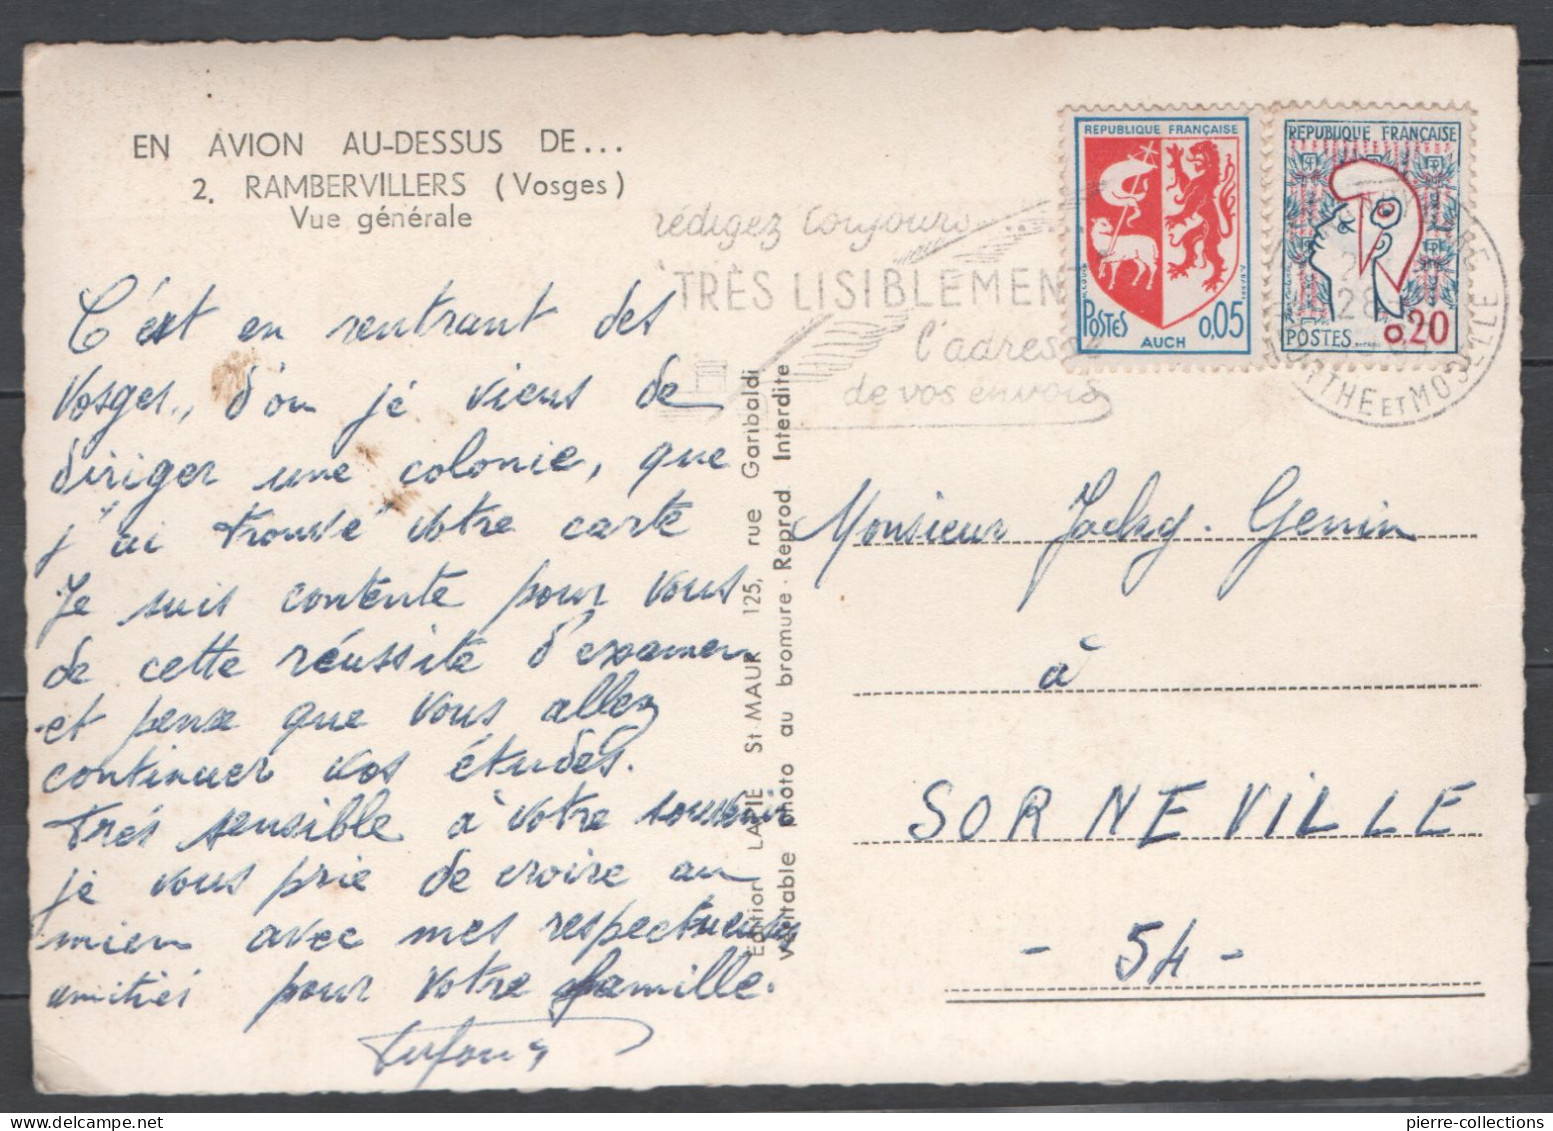 EN AVION AU-DESSUS DE...
2. RAMBERVILLERS (Vosges)
Vue générale
C'est en rentrant des
Vosges, d'où je viens de
diriger une colonie, que
j'ai trouvé votre carte
Je suis contente pour vous
de cette réussite d'examen
et pense que vous allez
continuer vos études.
Très sensible à votre souvenir
je vous prie de croire au
mien avec mes respectueuses
amitiés pour votre famille.
Edition LAPIE St-MAUR 125, rue Garibaldi
Véritable photo au bromure - Reprod. Interdite
rédigez toujours...
"TRÈS LISIBLEMENT"
l'adresse
de vos envois
REPUBLIQUE FRANÇAISE
POSTES 0,05
AUCH
REPUBLIQUE FRANÇAISE
0,20
POSTES
MEURTHE ET MOSELLE
Monsieur Jacky Genin
à
SORNEVILLE
- 54 -
pierre-collections